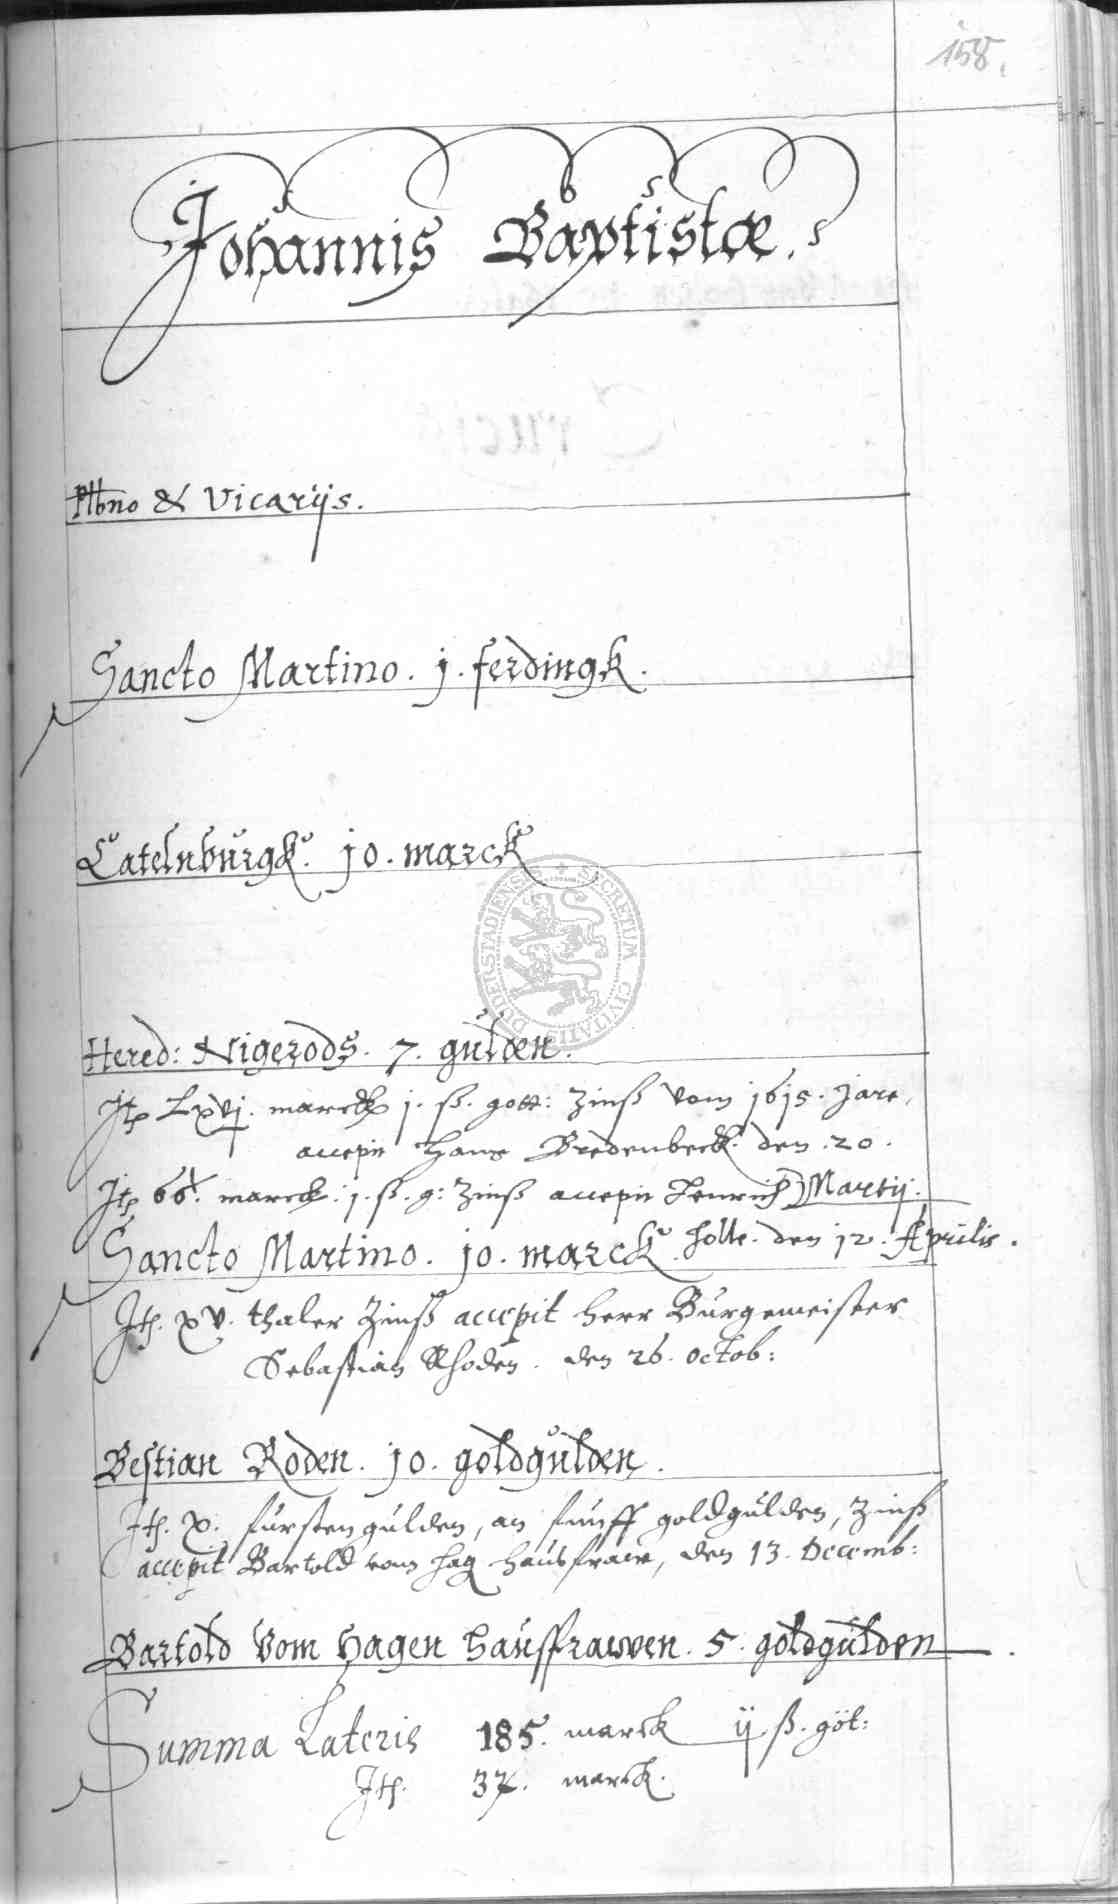 158.
Johannis Baptistæ.
Plbno & Vicarijs.
Sancto Martino. j. ferdingk.
Catelnburgk. jo. marck
Hered: Nigerods. 7. gulden.
Jtp Lxvj. marck j. ß. gott: Zinß vom j6j5. Jare,
accepit Hans Bredenbeck. den .20.
Jtp 66. marck. j. ß. g: Zinß accepit Henrich Martij.
Sancto Martino. jo. marck. Holle. den j2. Aprilis.
Jth. xv. thaler Zinß accepit herr Burgemeister
Sebastian Rhoden. den 26. octob:
Bestian Roden. jo. goldgulden.
Jth. x. fursten gulden, an funff goldgulden, Zinß
accepit Bartold vom Hag hausfraw, den 13. Decemb:
Bartold Vom Hagen Haussfrawen. 5. goldgulden.
Summa Lateris 185. marck ij ß. göt:
Jth. 37. marck.
DUDERSTADIENSIS SECRETUM CIVITATIS